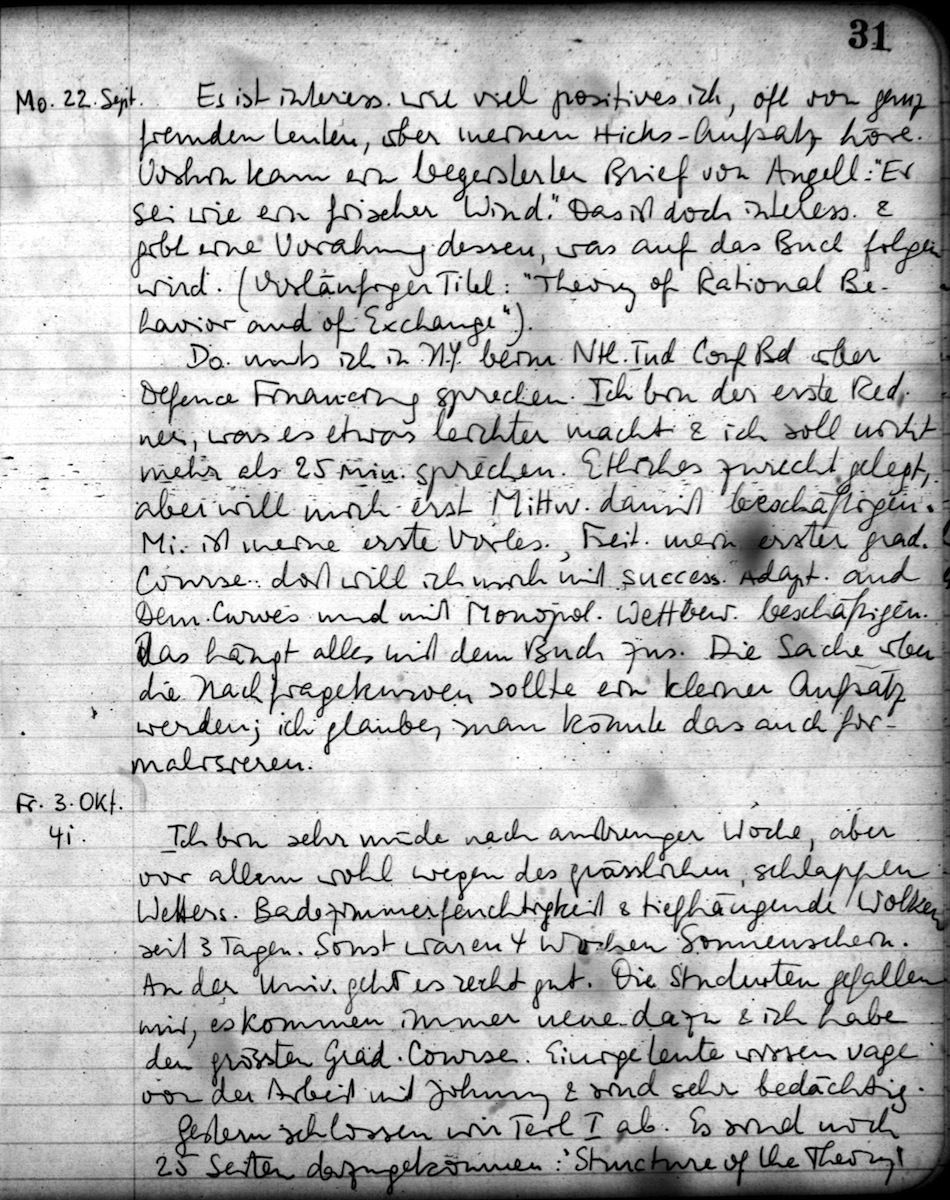 31
Mo. 22. Sept. Es ist interess. wie viel positives ich, oft von ganz
fremden Leuten, über meinen Hicks-Aufsatz höre.
Vorhin kam ein begeisterter Brief von Angell: "Er
sei wie ein frischer Wind." Das ist doch interess. &
gibt eine Vorahnung dessen, was auf das Buch folgen
wird. (Vorläufiger Titel: "Theory of Rational Be-
havior and of Exchange").
Do. muss ich in N.Y. beim Ntl. Ind Conf Bd über
Defence Financing sprechen. Ich bin der erste Red-
ner, was es etwas leichter macht & ich soll nicht
mehr als 25 min. sprechen. Etliches zurecht gelegt,
aber will mich erst Mittw. damit beschäftigen.
Mi. ist meine erste Vorles., Freit. mein erster grad.
Course. dort will ich mich mit success. Adapt. and
Dem. Curves und mit Monopol. Wettbew. beschäftigen.
Das hängt alles mit dem Buch zus. Die Sache über
die Nachfragekurven sollte ein kleiner Aufsatz
werden; ich glaube, man könnte das auch for-
malisieren.
Fr. 3. Okt.
41. Ich bin sehr müde nach anstrenger Woche, aber
vor allem wohl wegen des grässlichen, schlappen
Wetters. Badezimmerfeuchtigkeit & tiefhängende Wolken
seit 3 Tagen. Sonst waren 4 Wochen Sonnenschein.
An der Univ. geht es recht gut. Die Studenten gefallen
mir, es kommen immer neue dazu & ich habe
den grössten Grad. Course. Einige Leute wissen vage
von der Arbeit mit Johnny & sind sehr bedächtig.
Gestern schlossen wir Teil I ab. Es sind noch
25 Seiten dazugekommen: "Structure of the Theory"